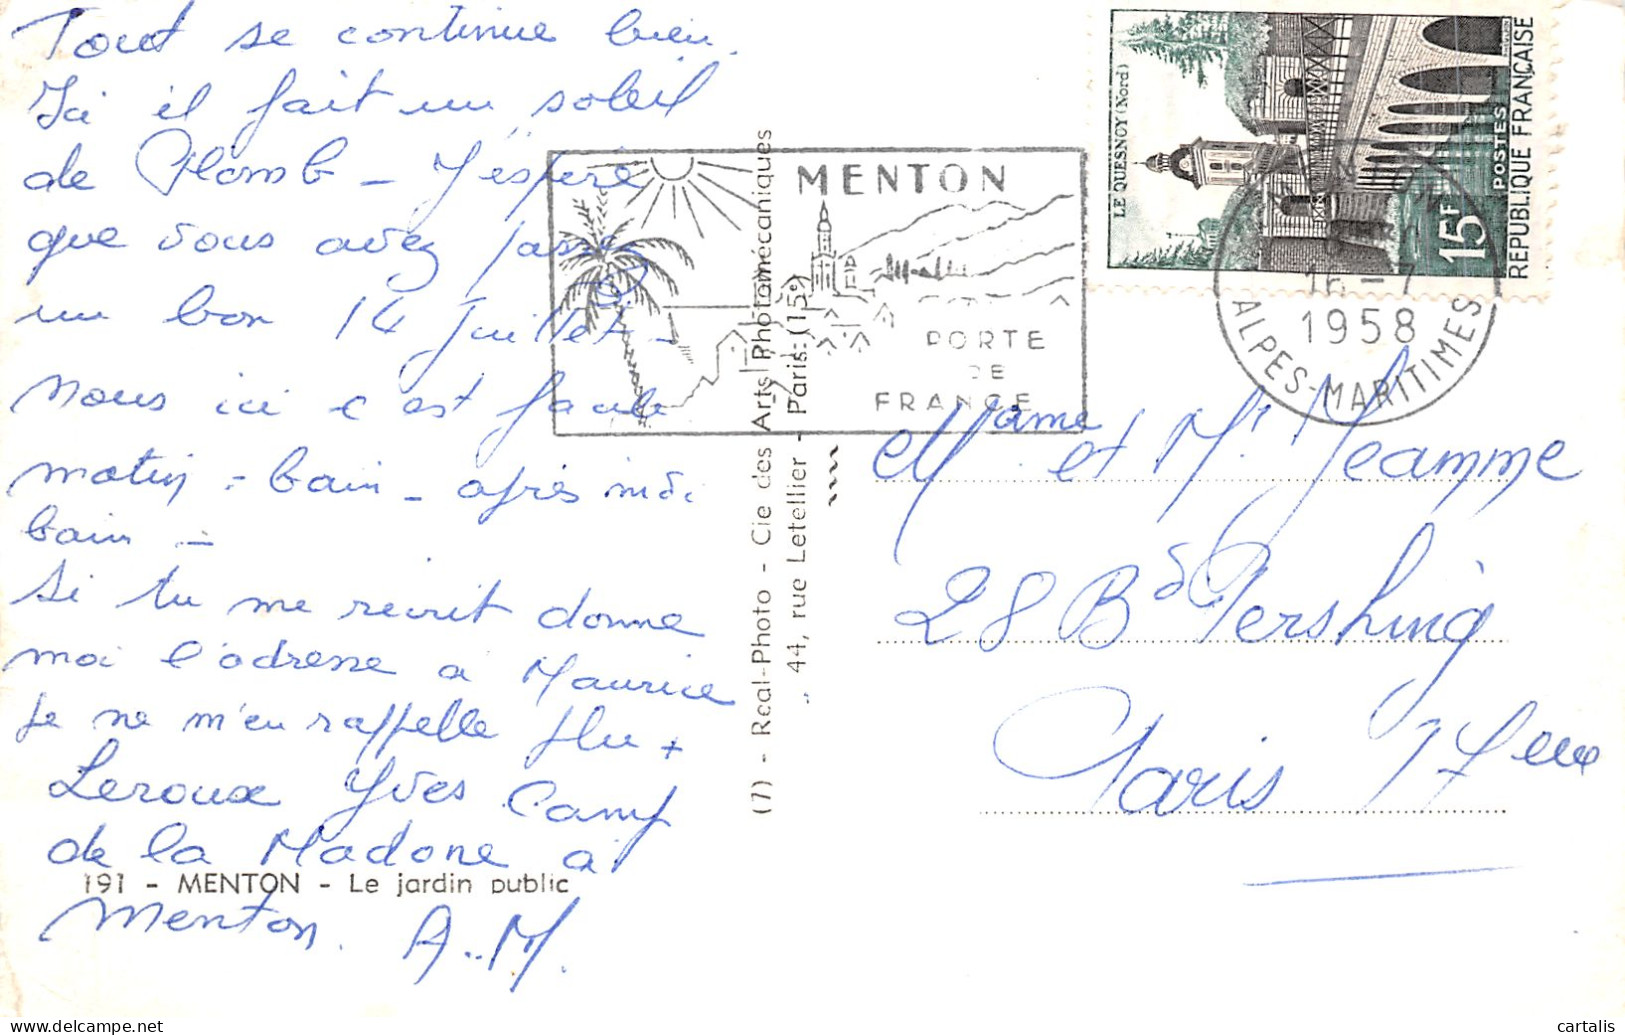 Tout se continue bien.
Ici il fait un soleil
de Plomb - J'espère
que vous avez passé
un bon 14 Juillet -
nous ici c'est facile
matin - bain - après midi
bain -
Si tu me récrit donne
moi l'adresse à Maurice
Je ne m'en rappelle plu +
Leroux Yves Camp
de la Madone à
Menton. A.M.
191 - MENTON - Le jardin public
(7) - Real-Photo - Cie des Arts Photomécaniques
44, rue Letellier - Paris (15e)
MENTON
PORTE
DE
FRANCE
LE QUESNOY (Nord)
15F
POSTES
REPUBLIQUE FRANÇAISE
16-7
1958
ALPES-MARITIMES
Mame et Mr Jeamme
28 Bd Pershing
Paris 17eme
cartalis
delcampe.net